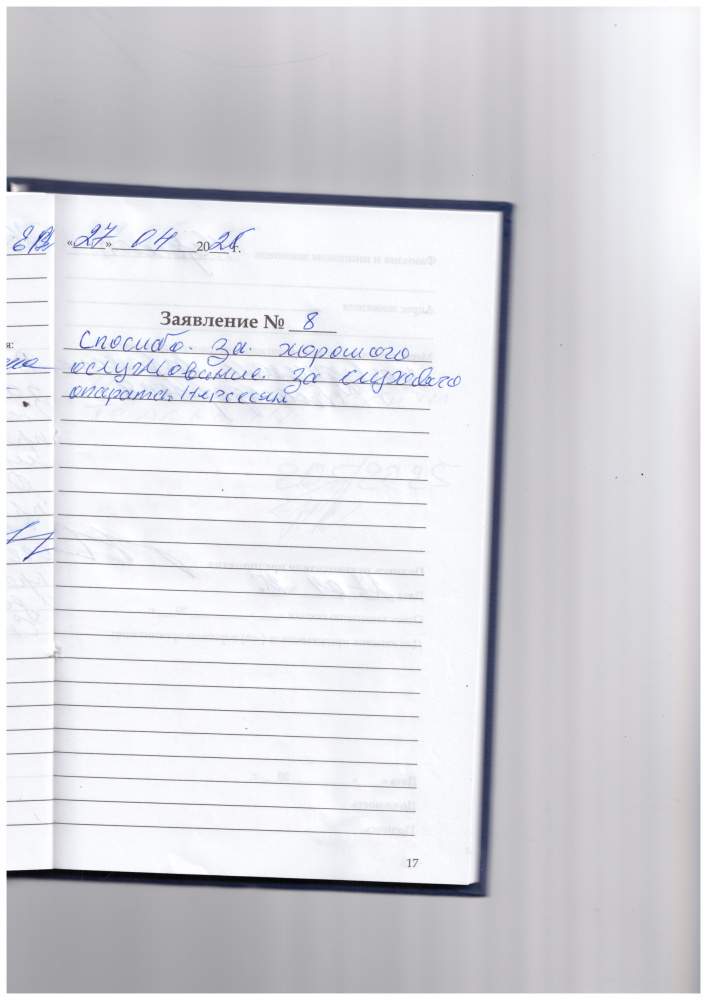 «27» 04 2026 г.
Заявление № 8
Спосибо. за. хорошого
ослуживание. за слухавого
опарата. Нерсесян
17